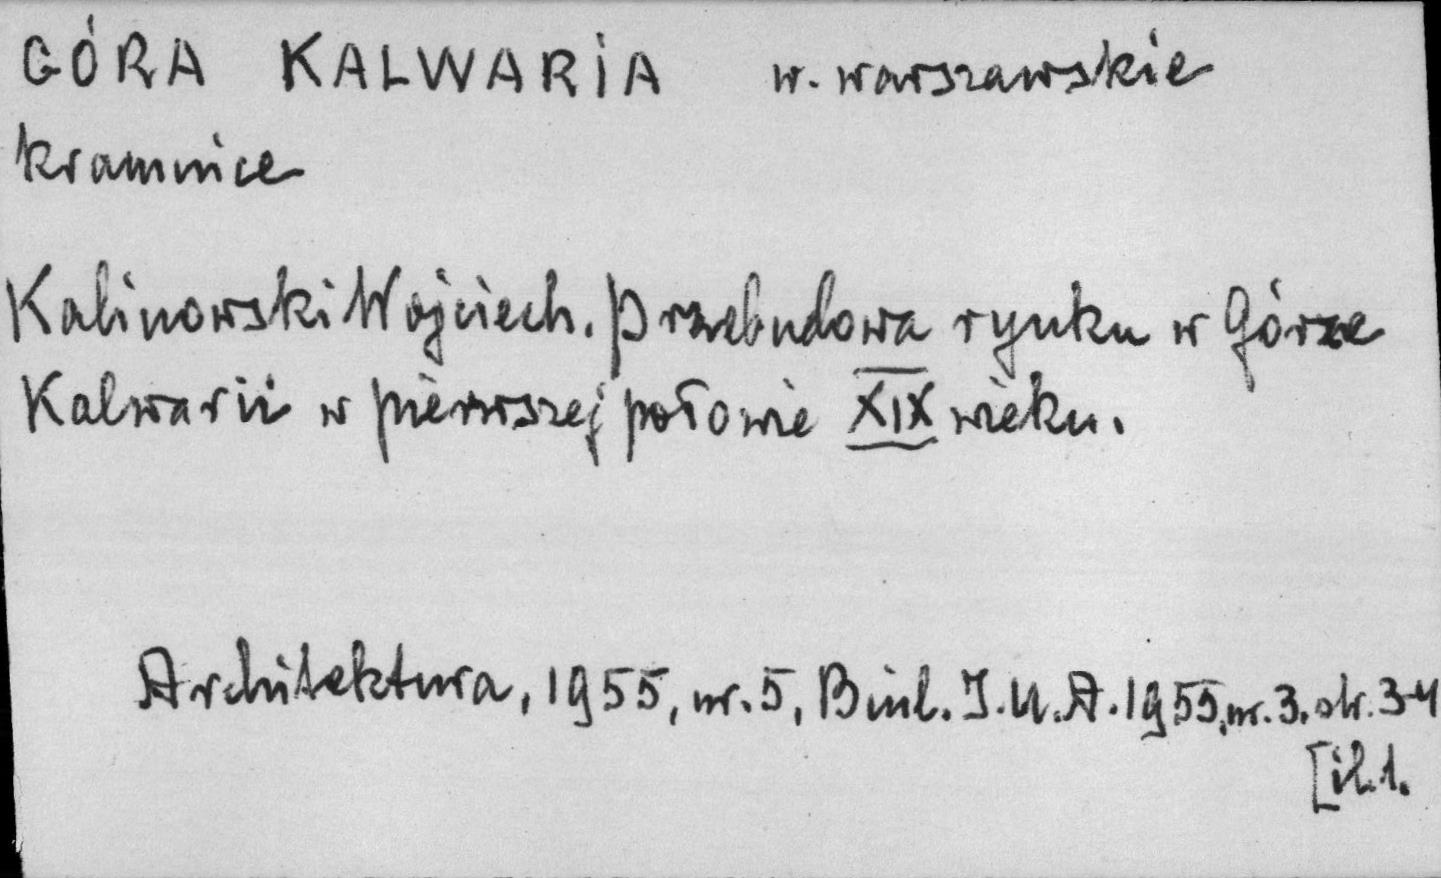 GÓRA KALWARIA w. warszawskie
kramnice
Kalinowski Wojciech. Przebudowa rynku w Górze
Kalwarii w pierwszej połowie XIX wieku.
Architektura, 1955, nr. 5, Biul. I.U.A. 1955, nr. 3. str. 3-4
[il. 1.